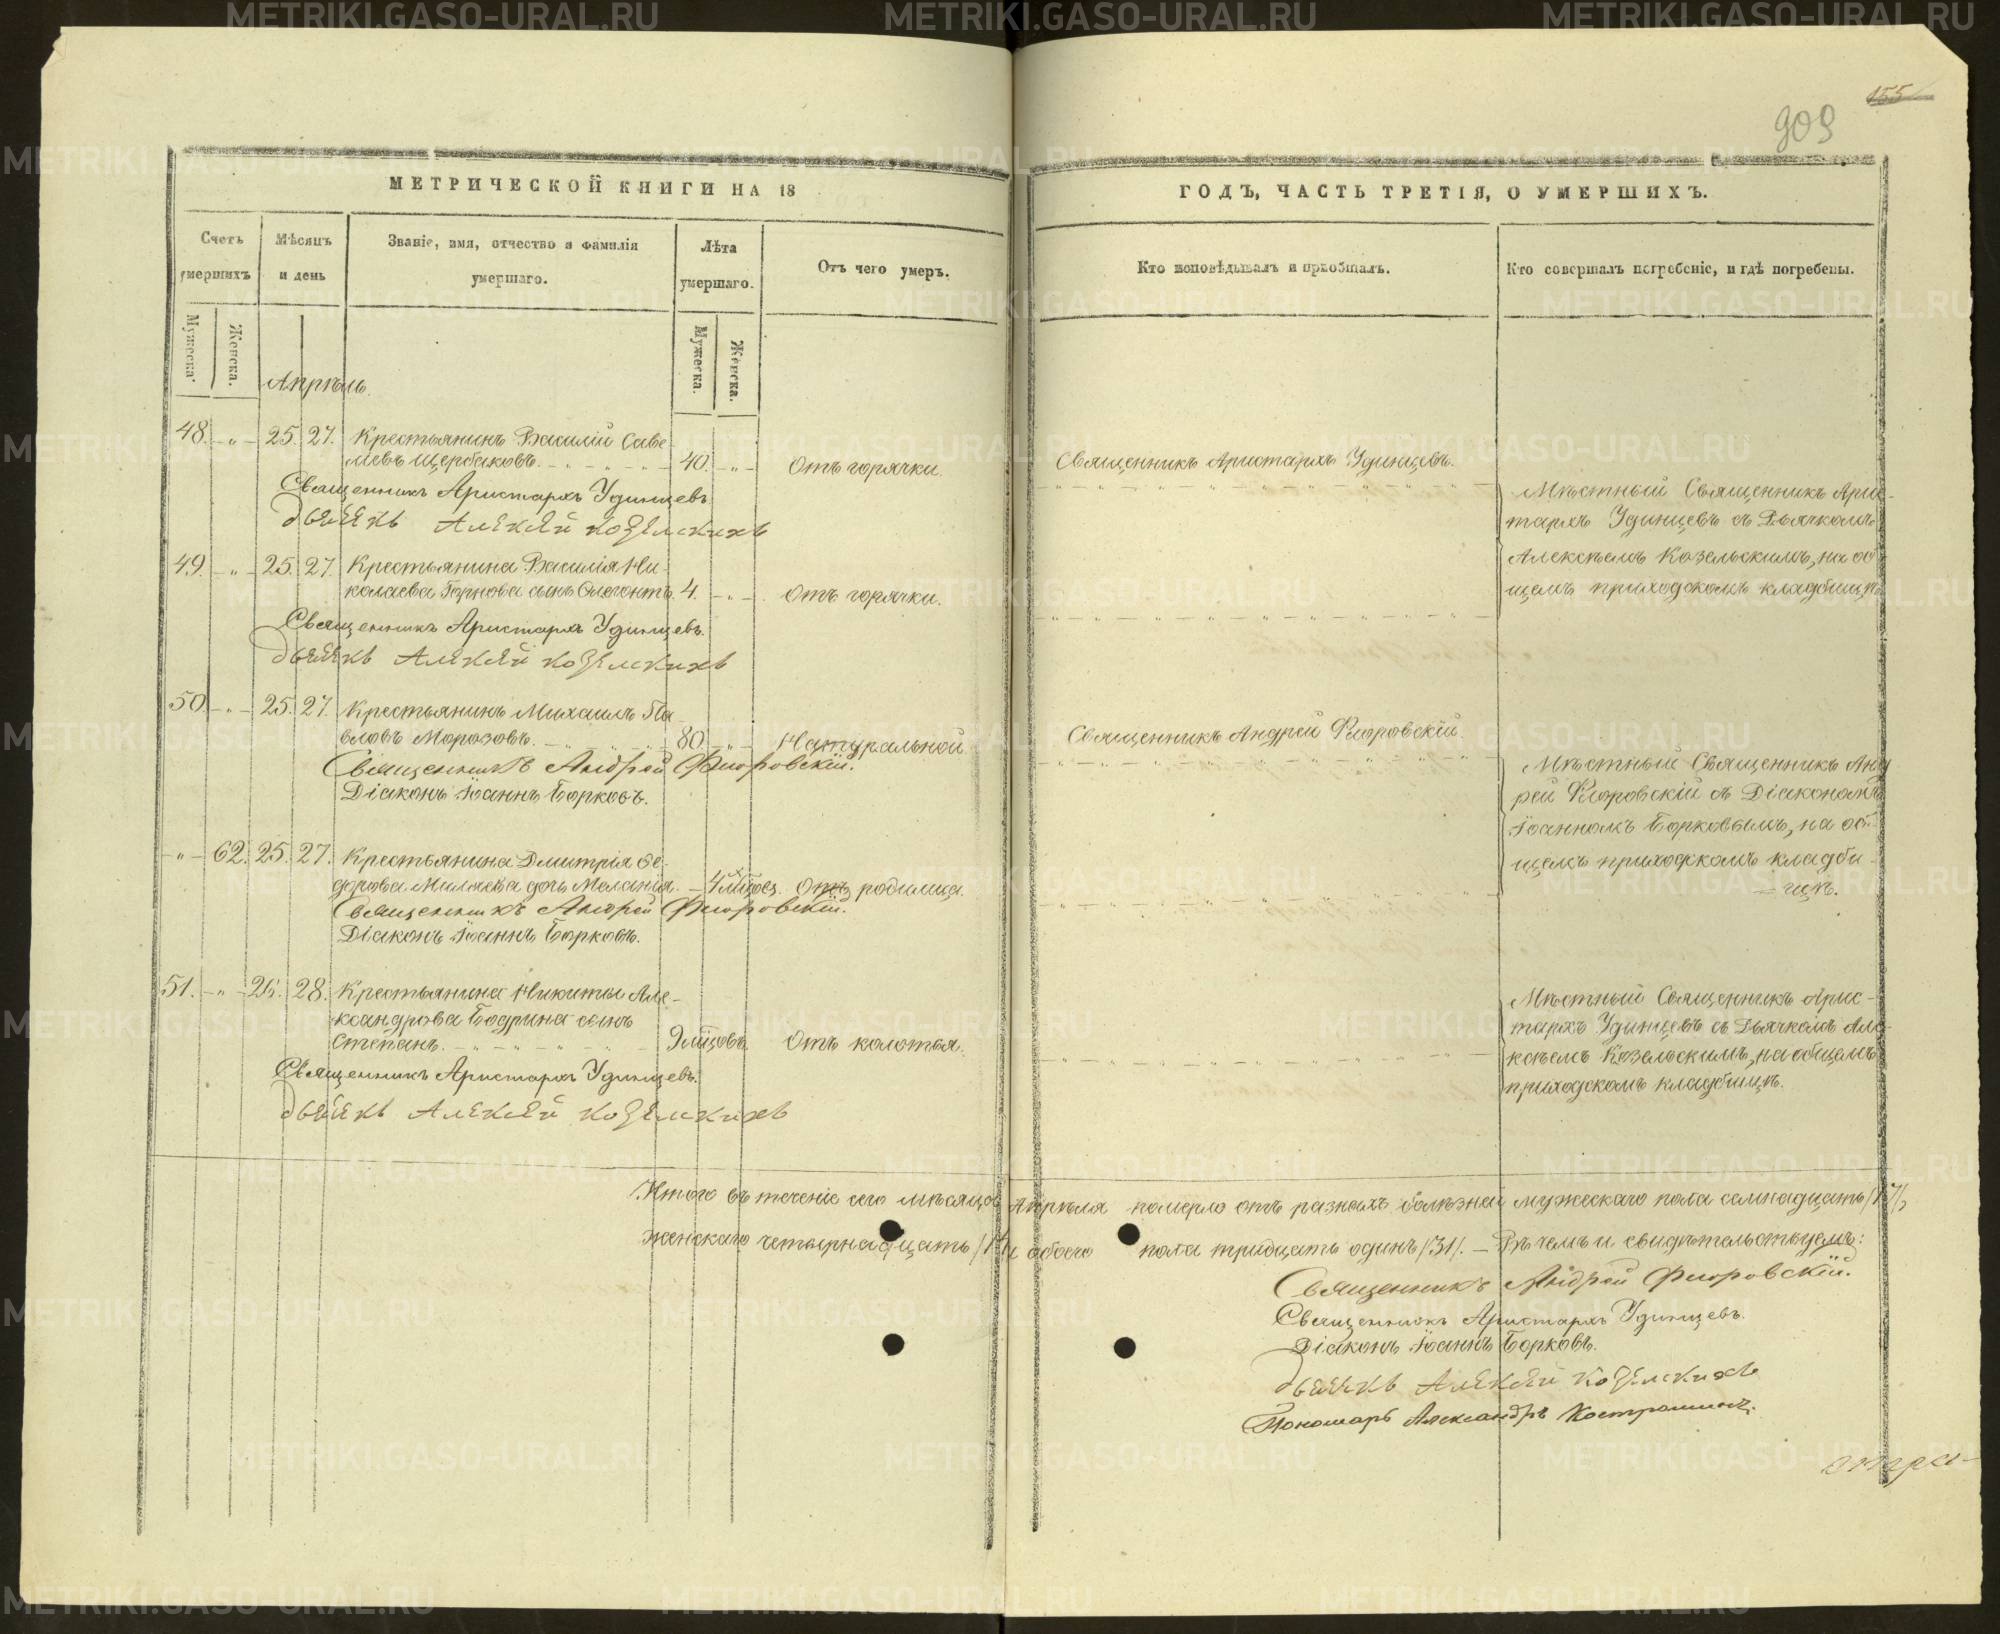 155
909
МЕТРИЧЕСКОЙ КНИГИ НА 18
ГОДЪ, ЧАСТЬ ТРЕТІЯ, О УМЕРШИХЪ.
Счетъ умершихъ
Мѣсяцъ и день
Званіе, имя, отчество и фамилія умершаго.
Лѣта умершаго.
Отъ чего умеръ.
Кто исповѣдывалъ и пріобщалъ.
Кто совершалъ погребеніе, и гдѣ погребены.
Мужеска.
Женска.
Мужеска.
Женска.
Апрѣль.
48. - " - 25. 27. Крестьянинъ Василій Саве-
льевъ Щербаковъ. 40. - " - Отъ горячки.
Священникъ Аристархъ Удинцевъ.
Священникъ Аристархъ Удинцевъ
Дьячекъ Алексей Козелскихъ
Мѣстный Священникъ Арис-
тархъ Удинцевъ съ Дьячкомъ
Алексѣемъ Козельскимъ, на об
щемъ приходскомъ кладбищѣ
49. - " - 25. 27. Крестьянина Василія Ни-
колаева Горнова сынъ 4. - " - Отъ горячки.
Священникъ Аристархъ Удинцевъ.
Дьячекъ Алексей Козелскихъ
50. - " - 25. 27. Крестьянинъ Михаилъ Па-
вловъ Морозовъ. 80. - " - Натуральной
Священникъ Андрей Флоровскій.
Священникъ Андрей Флоровскій.
Діаконъ Іоаннъ Борковъ.
Мѣстный Священникъ Анд
рей Флоровскій съ Діакономъ
Іоанномъ Борковымъ, на об-
щемъ приходскомъ кладби-
щѣ.
- " - 62. 25. 27. Крестьянина Дмитрія Ѳе-
дорова Миляева дочь Меланія. 4 мѣсяц. Отъ родимца.
Священникъ Андрей Флоровскій.
Діаконъ Іоаннъ Борковъ.
51. - " - 26. 28. Крестьянина Никиты Але-
ксандрова Бодрина сынъ
Степанъ. 9 мѣсцовъ. Отъ колотья.
Священникъ Аристархъ Удинцевъ.
Дьячекъ Алексей Козелскихъ
Мѣстный Священникъ Арис-
тархъ Удинцевъ съ Дьячкомъ Але-
ксѣемъ Козельскимъ, на общемъ
приходскомъ кладбищѣ.
Итого въ теченіе сего мѣсяца Апрѣля померло отъ разныхъ болѣзней мужескаго пола семнадцать /17/,
женскаго четырнадцать /14/ и обоего пола тридцать одинъ /31/. - Въ чемъ и свидѣтельствуемъ:
Священникъ Андрей Флоровскій.
Священникъ Аристархъ Удинцевъ.
Діаконъ Іоаннъ Борковъ.
Дьячекъ Алексей Козелскихъ
Пономарь Александръ Костроминъ.
METRIKI.GASO-URAL.RU